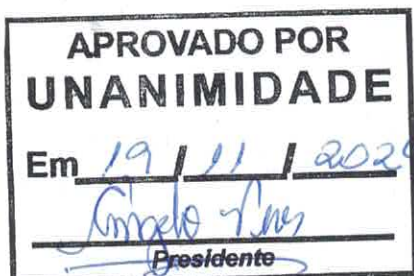 APROVADO POR
UNANIMIDADE
Em 19 / 11 /
Presidente